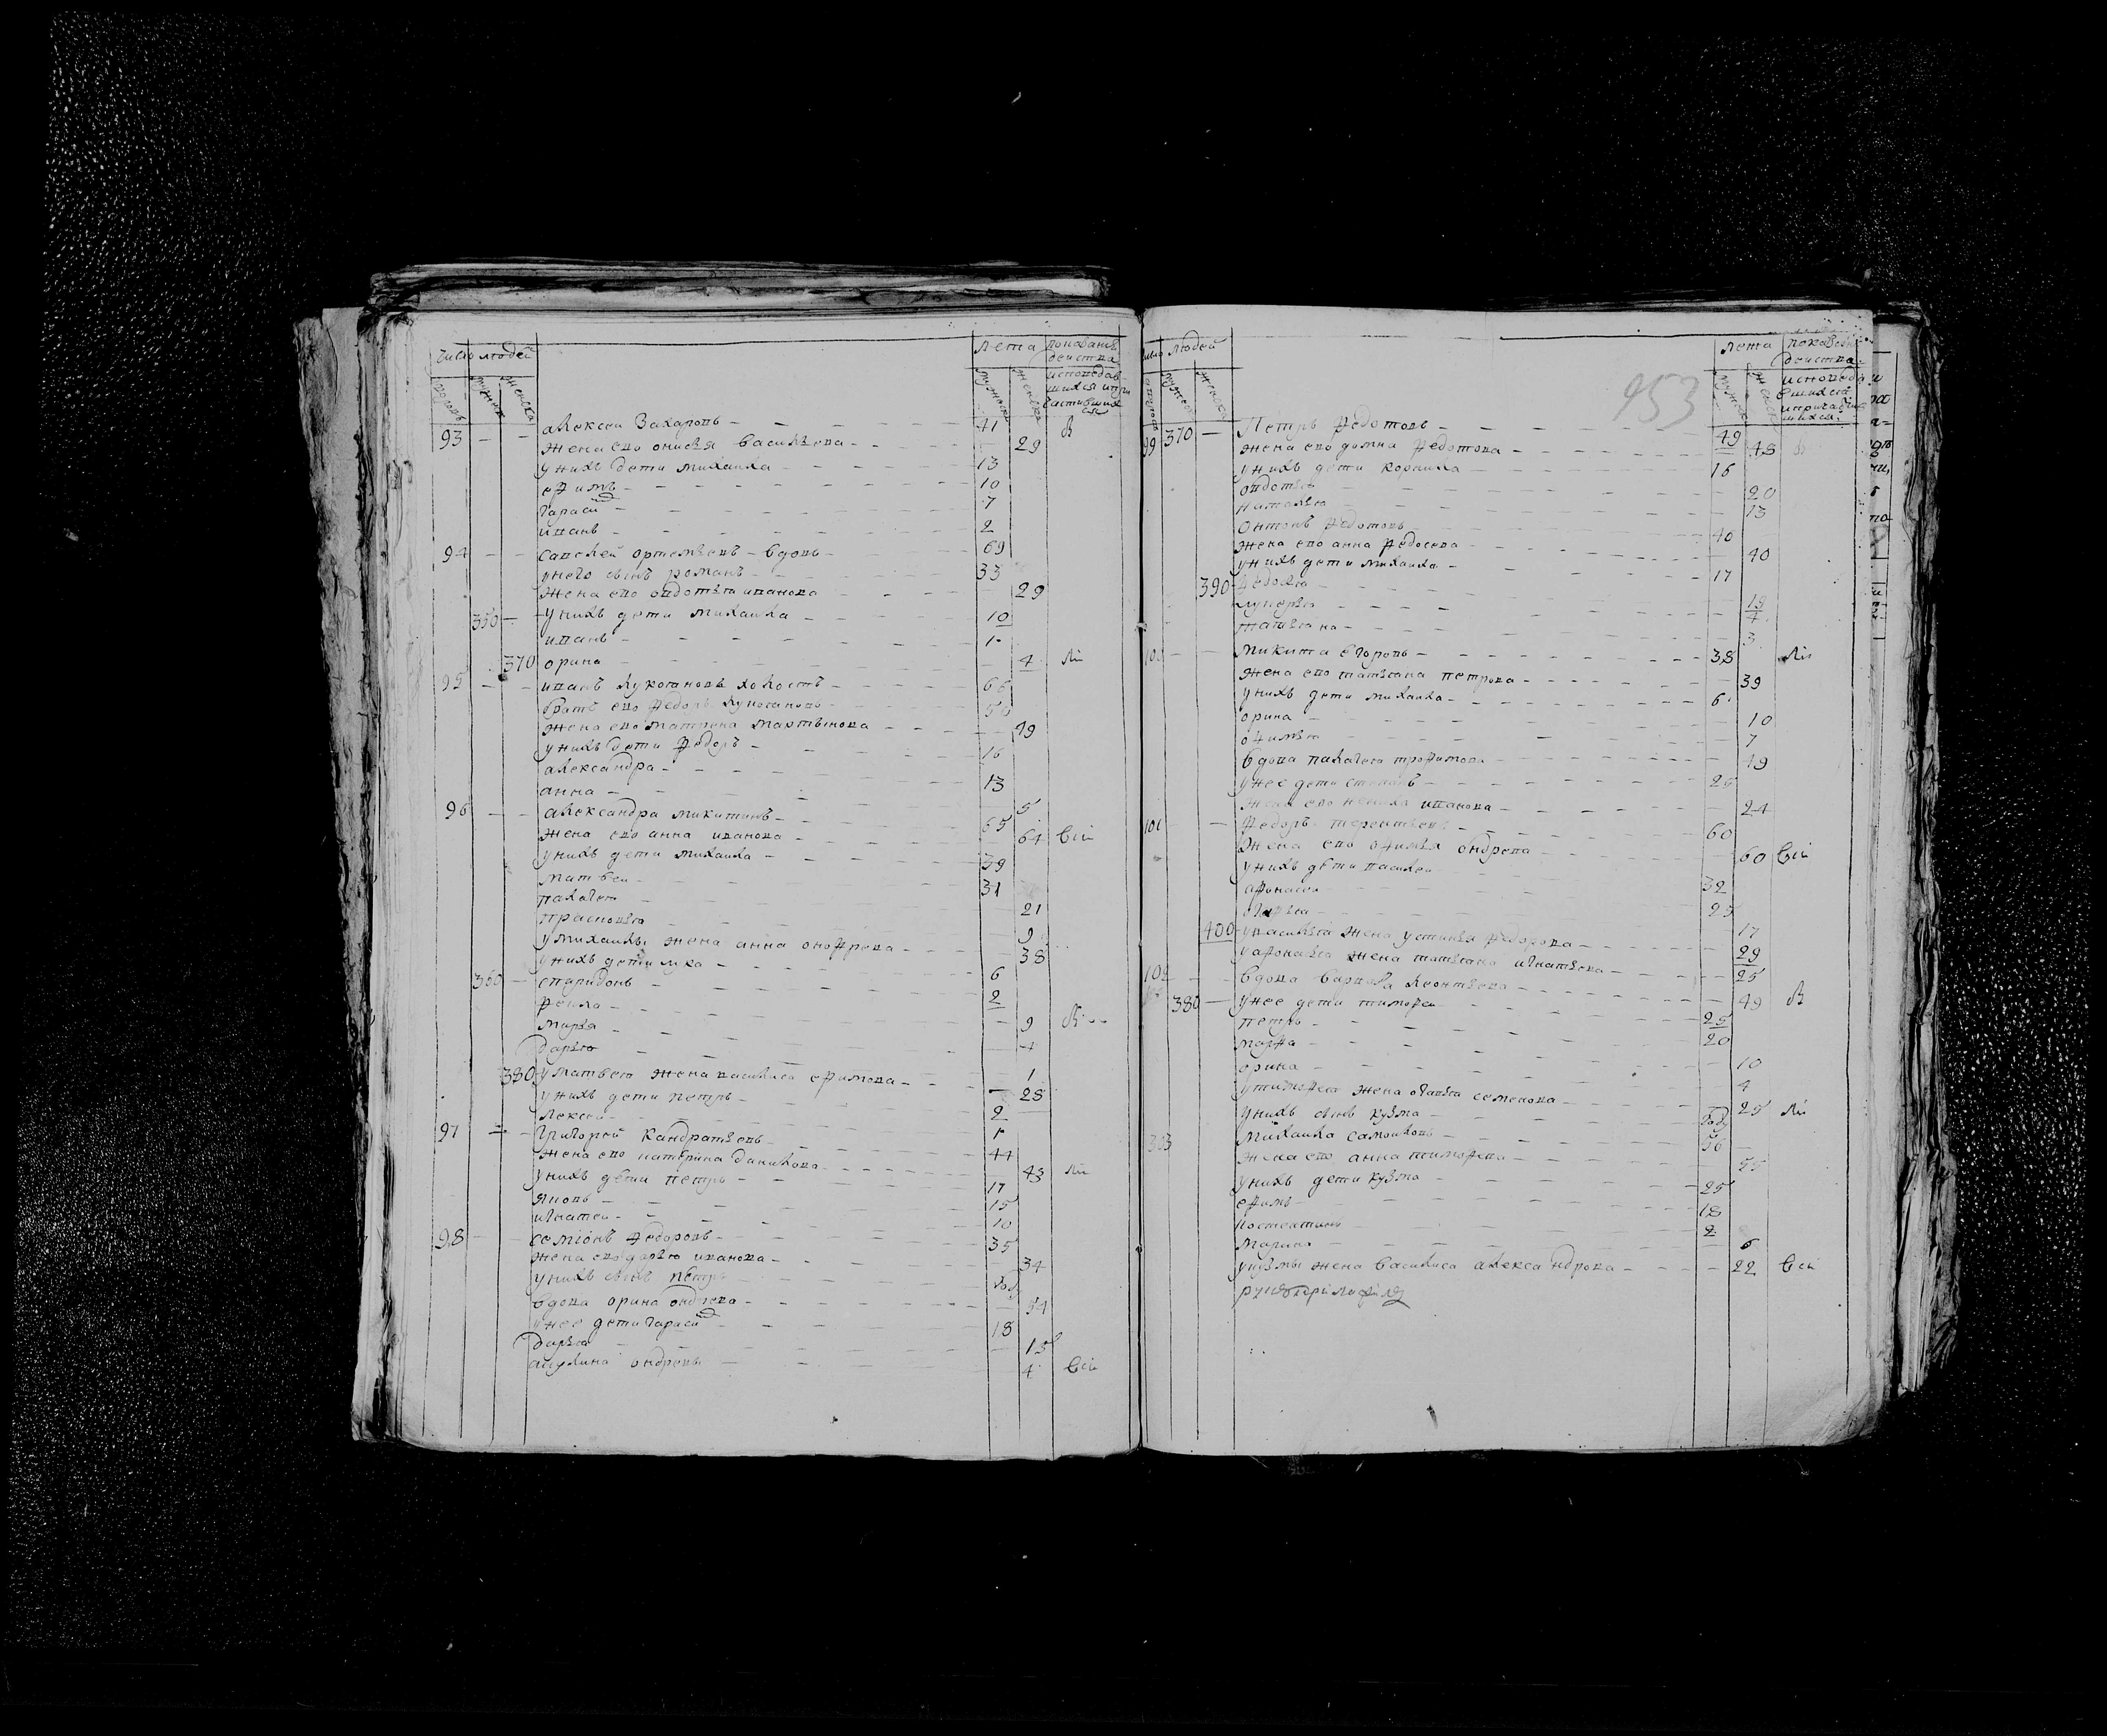 число людей лета показание действа
дворовъ мужеска женска мужска женска исповедав шихся и при частивших ся
93 алексеи Захаровъ 41
жена ево онисья васильева 29
у нихъ дети михаила 13
ефимъ 10
гарасим 7
иванъ 2
94 савелей ортемьевъ вдовъ 69
у него сынъ романъ 33
жена ево овдотья иванова 29
350 у нихъ дети михаила 10
иванъ 1
370 орина 4
95 иванъ лукояновъ холостъ 66
братъ ево федоръ лукояновъ 50
жена ево матрена мартынова 49
у нихъ дети федоръ 16
александра 13
анна 5
96 александра микитинъ 65
жена ево анна иванова 64
у нихъ дети михаила 39
матвеи 31
палагея 21
прасковья 9
у михаилы жена анна онофрева 38
у нихъ дети лука 6
360 спиридонъ 2
фекла 9
марья 4
дарья 1
380 у матвея жена василиса ефимова 28
у нихъ дети петръ 2
лексеи 1
97 григорей кандратьевъ 44
жена ево катерина данилова 43
у нихъ дети петръ 17
яковъ 15
игнатеи 10
98 семионъ федоровъ 35
жена ево дарья иванова 34
у нихъ сынъ петръ
вдова орина ондрева 54
у нее дети гарасим 18
дарья 15
акулина ондрева 4
953
число людей лета показание действа
мужеска женска исповеда вшихся и причасти шихся
99 370 Петръ федотовъ 49
жена ево домна федотова 48
у нихъ дети корнила 16
овдотья 20
наталья 13
онтонъ федотовъ 40
жена ево анна федосева 40
у нихъ дети михаила 17
390 федосья 18
лукерья 7
татьяна 3
100 микита егоровъ 38
жена ево татьяна петрова 39
у нихъ дети михаила 6
орина 10
офимья 7
вдова палагея трофимова 49
у нее дети степанъ 25
жена ево ненила иванова 24
101 федоръ терентьевъ 60
жена ево офимья ондрева 60
у нихъ дети василеи 32
афонасеи 25
огафья 17
400 у василья жена устинья федорова 29
у афонасья жена татьяна игнатьева 25
102 вдова варвара леонтьева 49
380 у нее дети тимофеи 25
петръ 20
марфа 10
орина 4
у тимофея жена огафья семенова 25
у нихъ сынъ кузма
103 михаила самоиловъ 56
жена ево анна тимофева 55
у нихъ дети кузма 25
ефимъ 18
костентинъ 2
марина 6
у кузмы жена василиса александрова 22